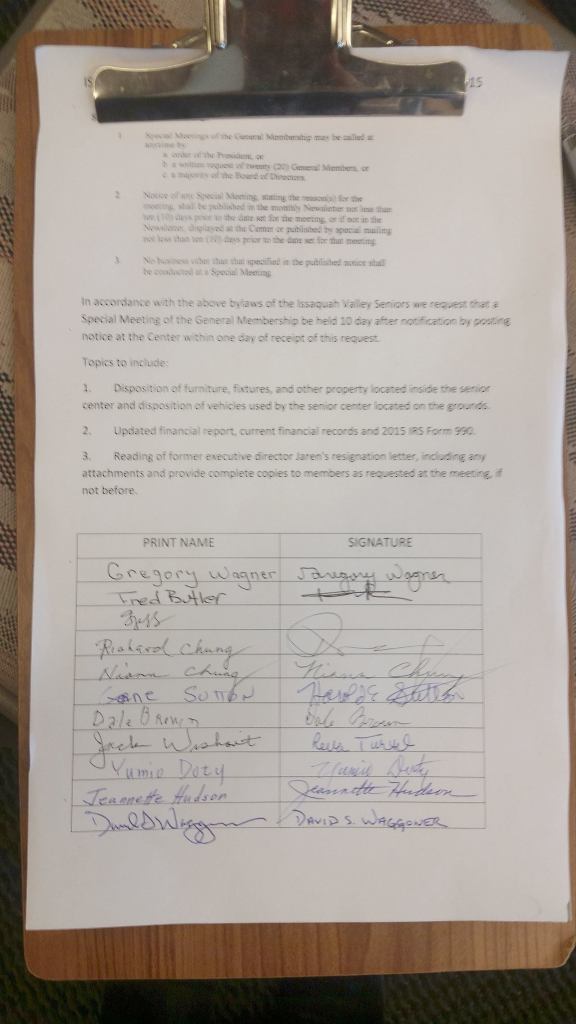 IS 15
1. Special Meetings of the General Membership may be called at
anytime by
a. order of the President, or
b. a written request of twenty (20) General Members, or
c. a majority of the Board of Directors.
2. Notice of any Special Meeting, stating the reason(s) for the
meeting, shall be published in the monthly Newsletter not less than
ten (10) days prior to the date set for the meeting, or if not in the
Newsletter, displayed at the Center or published by special mailing
not less than ten (10) days prior to the date set for that meeting.
3. No business other than that specified in the published notice shall
be conducted at a Special Meeting.
In accordance with the above bylaws of the Issaquah Valley Seniors we request that a
Special Meeting of the General Membership be held 10 day after notification by posting
notice at the Center within one day of receipt of this request.
Topics to include:
1. Disposition of furniture, fixtures, and other property located inside the senior
center and disposition of vehicles used by the senior center located on the grounds.
2. Updated financial report, current financial records and 2015 IRS Form 990.
3. Reading of former executive director Jaren's resignation letter, including any
attachments and provide complete copies to members as requested at the meeting, if
not before.
PRINT NAME SIGNATURE
Gregory Wagner Gregory Wagner
Fred Butler
Richard Chung
Niann Chung Niann Chung
Gene Sutton Harold E Sutton
Dale Brown Dale Brown
Jack
Yumio Doty Yumio Doty
Jeannette Hudson Jeannette Hudson
David S Waggoner DAVID S. WAGGONER